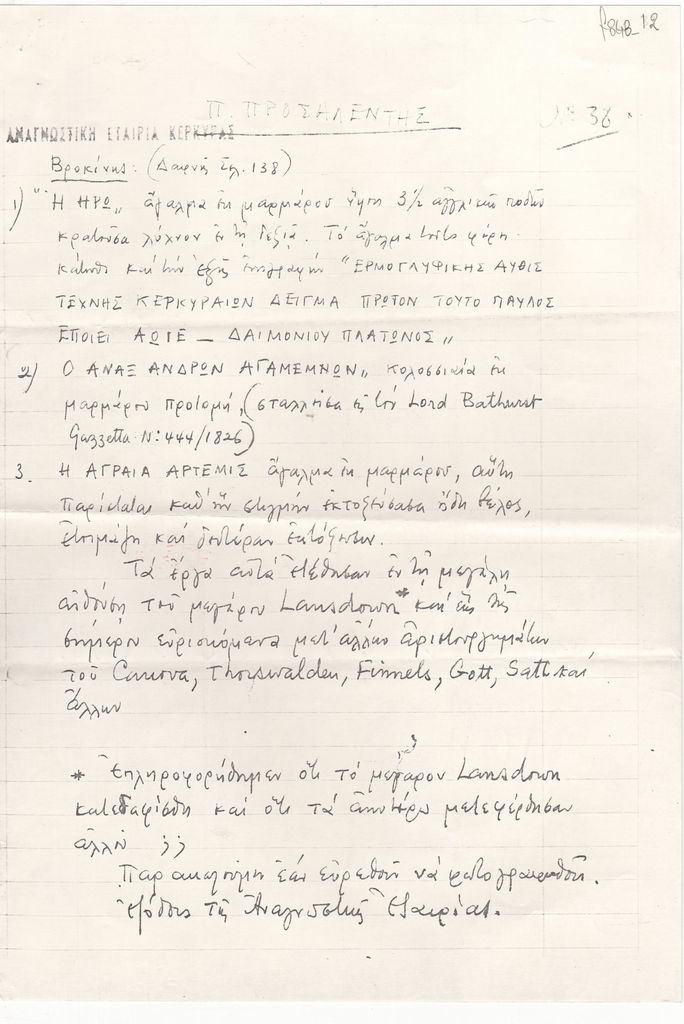 f 848_12
Π. ΠΡΟΣΑΛΕΝΤΗΣ
Nº 38
ΑΝΑΓΝΩΣΤΙΚΗ ΕΤΑΙΡΙΑ ΚΕΡΚΥΡΑΣ
Βροκίνης: (Δαφνής Σελ. 138)
1) "Ἡ ΗΡΩ" ἄγαλμα ἐκ μαρμάρου ὕψη 3½ ἀγγλικῶν ποδῶν
κρατοῦσα λύχνον ἐν τῇ δεξιᾷ. Τό ἄγαλμα τοῦτο φέρει
κάτωθι καί τήν ἑξῆς ἐπιγραφήν "ΕΡΜΟΓΛΥΦΙΚΗΣ ΑΥΘΙΣ
ΤΕΧΝΗΣ ΚΕΡΚΥΡΑΙΩΝ ΔΕΙΓΜΑ ΠΡΩΤΟΝ ΤΟΥΤΟ ΠΑΥΛΟΣ
ΕΠΟΙΕΙ ΑΩΙΕ — ΔΑΙΜΟΝΙΟΥ ΠΛΑΤΩΝΟΣ"
2) Ο ΑΝΑΞ ΑΝΔΡΩΝ ΑΓΑΜΕΜΝΩΝ" κολοσσιαία ἐκ
μαρμάρου προτομή, (σταλεῖσα εἰς τόν Lord Bathurst
Gazzetta Nº: 444/1826)
3. Η ΑΓΡΑΙΑ ΑΡΤΕΜΙΣ ἄγαλμα ἐκ μαρμάρου, αὕτη
παρίσταται καθ' ἥν στιγμήν ἐκτοξεύσασα ἤδη βέλος,
ἑτοιμάζει καί δευτέραν ἐκτόξευσιν.
Τά ἔργα αὐτά ἐτέθησαν ἐν τῇ μεγάλῃ
αἰθούσῃ τοῦ μεγάρου Lansdown* καί ἕως τῆς
σήμερον εὑρισκόμενα μετ' ἄλλων ἀριστουργημάτων
τοῦ Canova, Thorswalden, Finnels, Gott, Satl καί
ἄλλων
* Ἐπληροφορήθημεν ὅτι τό μέγαρον Lansdown
κατεδαφίσθη καί ὅτι τά ἀνωτέρω μετεφέρθησαν
ἀλλοῦ ;;
Παρακαλοῦμεν ἐάν εὑρεθοῦν νά φωτογραφηθοῦν.
ἐξόδοις τῆς Ἀναγνωστικῆς Ἑταιρίας.